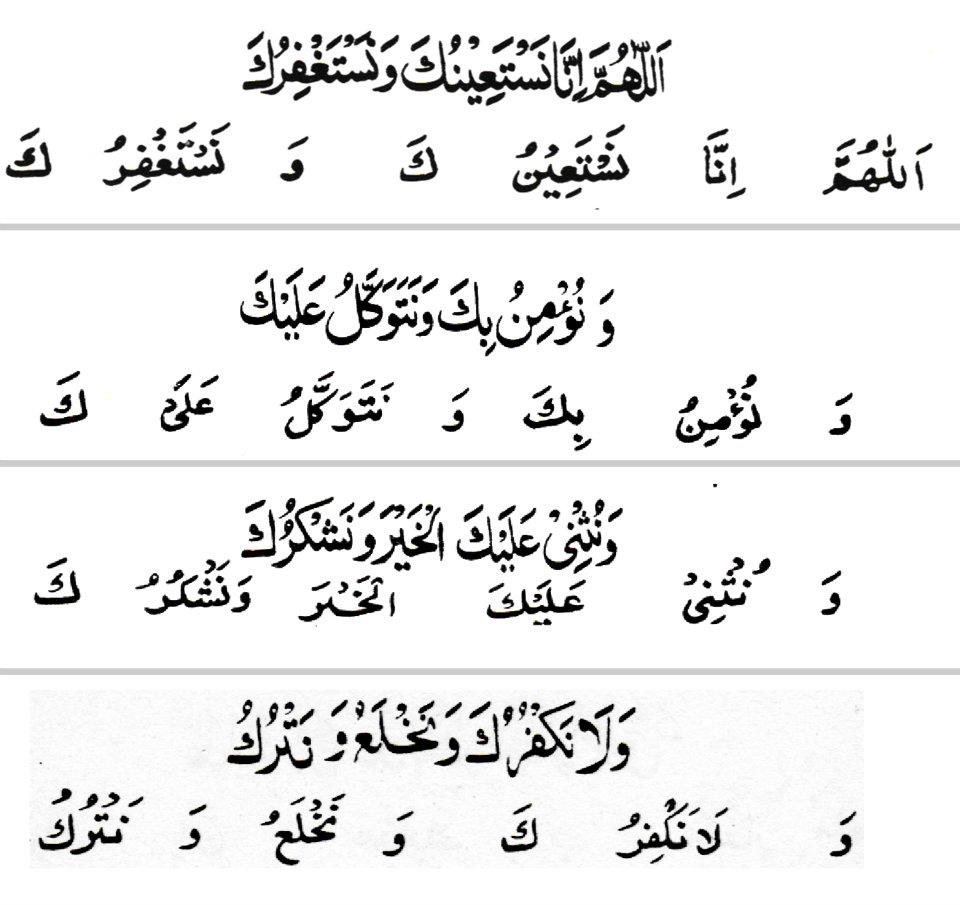 اَللّٰهُمَّ اِنَّا نَسْتَعِيْنُكَ وَنَسْتَغْفِرُكَ
اَللّٰهُمَّ اِنَّا نَسْتَعِيْنُ كَ وَ نَسْتَغْفِرُ كَ
وَ نُؤْمِنُ بِكَ وَنَتَوَكَّلُ عَلَيْكَ
وَ نُؤْمِنُ بِكَ وَ نَتَوَكَّلُ عَلَىْ كَ
وَنُثْنِىْ عَلَيْكَ الْخَيْرَ وَنَشْكُرُكَ
وَ نُثْنِىْ عَلَيْكَ الْخَيْرَ وَنَشْكُرُ كَ
وَلَا نَكْفُرُكَ وَنَخْلَعُ وَ نَتْرُكُ
وَ لَا نَكْفِرُ كَ وَ نَخْلَعُ وَ نَتْرُكُ